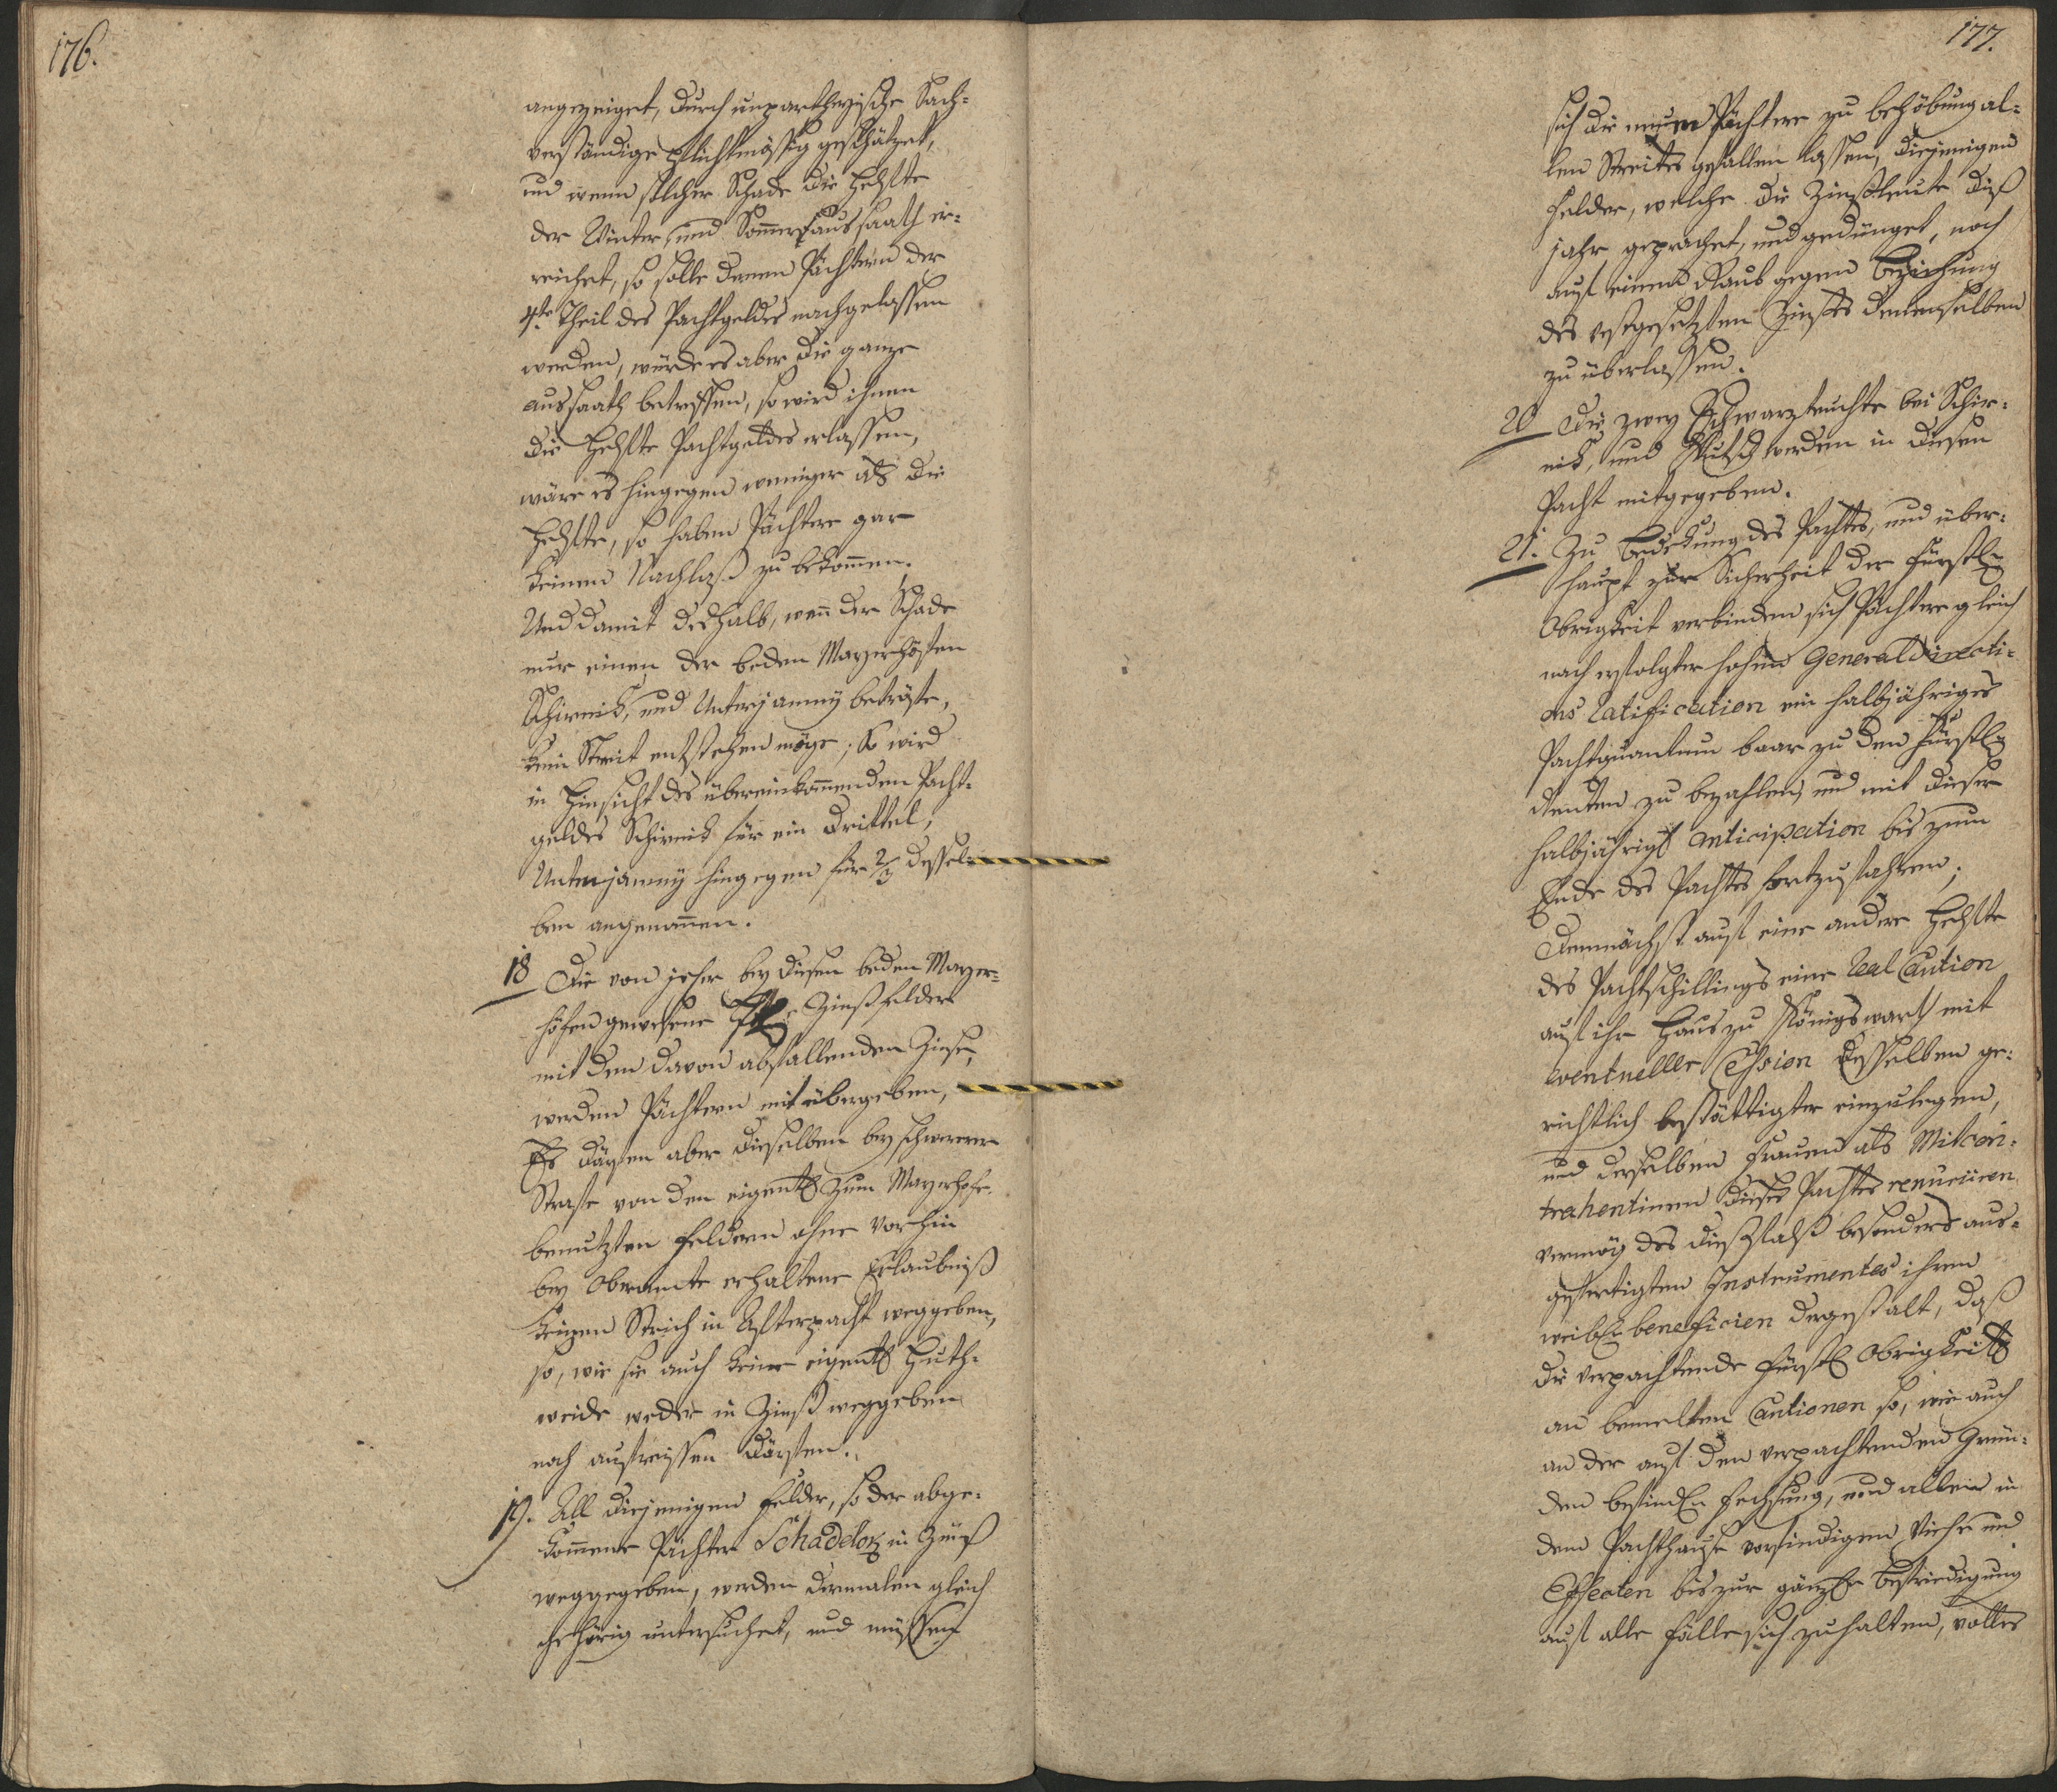 176.
angezeiget, durch unpartheyische Sach-
verständige pflichtmässig geschätzet,
und wenn solcher Schade die Helfte
der Winter, und Sommersaussaath er-
reichet, so solle denen Pächtern der
4te Theil des Pachtgeldes nachgelassen
werden, würde es aber die ganze
aussaath betreffen, so wird ihnen
die Helfte Pachtgeldes erlassen,
wäre es hingegen weniger als die
Helfte, so haben Pächtere gar
keinen Nachlaß zu bekom̄en.
Und damit deshalb, wen̄ der Schade
nur einen der beden Mayerhöfen
Schirnik, und Unterjamny beträfe,
kein Streit entstehen möge; So wird
in Hinsicht des übereinkom̄enden Pacht-
geldes Schirnik für ein Drittel,
Unterjamny hingegen für 2/3 dessel-
ben angenom̄en.
18 Die von jeher bey diesen beden Mayer-
höfen gewesene Zinßfelder
mit dem davon abfallenden Zinse,
werden Pächtern mit übergeben,
Es därfen aber dieselben bey schwerer
Strafe von den eigentl zum Mayerhofe
benutzten Feldern ohne vorhin
bey Oberamte erhaltene Erlaubniß
keinen Strich in Afterpacht weggeben,
so, wie sie auch keine eigentl Huth-
weide weder in Zinß weggeben
noch aufreissen därfen.
19. All diejenigen Felder, so der abge-
kom̄ene Pächter Schadelok in Zinß
weggegeben, werden dermalen gleich
gehörig untersuchet, und müssen
177.
sich die neuen Pächtere zu behöbung al-
len Streites gefallen lassen, diejenigen
Felder, welche die Zinßleute dieß
jahr geprachet, und gedünget, noch
auf einen Raub gegen beziehung
des vestgesetzten Zinses denenselben
zu überlassen.
20 Die zwey Schwarzteuchte bei Schir-
nik, und werden in diesen
Pacht mitgegeben.
21. Zu bedekung des Pachtes, und über-
haupt zur Sicherheit der Fürstln
Obrigkeit verbinden sich Pächtere gleich
nach erfolgter hohen Generaldirecti-
ons Ratification ein halbjähriges
Pachtquantum baar zu den Fürstln
Renten zu bezahlen, und mit dieser
halbjährigl anticipation bis zum
Ende des Pachtes fortzufahren;
Demnächst auf eine andere Helfte
des Pachtschillings eine Real Caution
auf ihr Haus zu Königswarth mit
eventueller Cession desselben ge-
richtlich bestättigter einzulegen,
und derselben Frauen als Mitcon-
trahentinen dieses Pachtes renunciiren
vermög des dießfalß besonders aus-
gefertigten Instrumentes ihren
weibln beneficien dergestalt, daß
die verpachtende Fürstl Obrigkeit
an bemelten Cautionen so, wie auch
an der auf den verpachtenden Grün-
den befindln Fechsung, und allem in
dem Pachthause vorfindigen Viehe und
Effecten bis zur gänzln befriedigung
auf alle Fälle sich zuhalten, volles